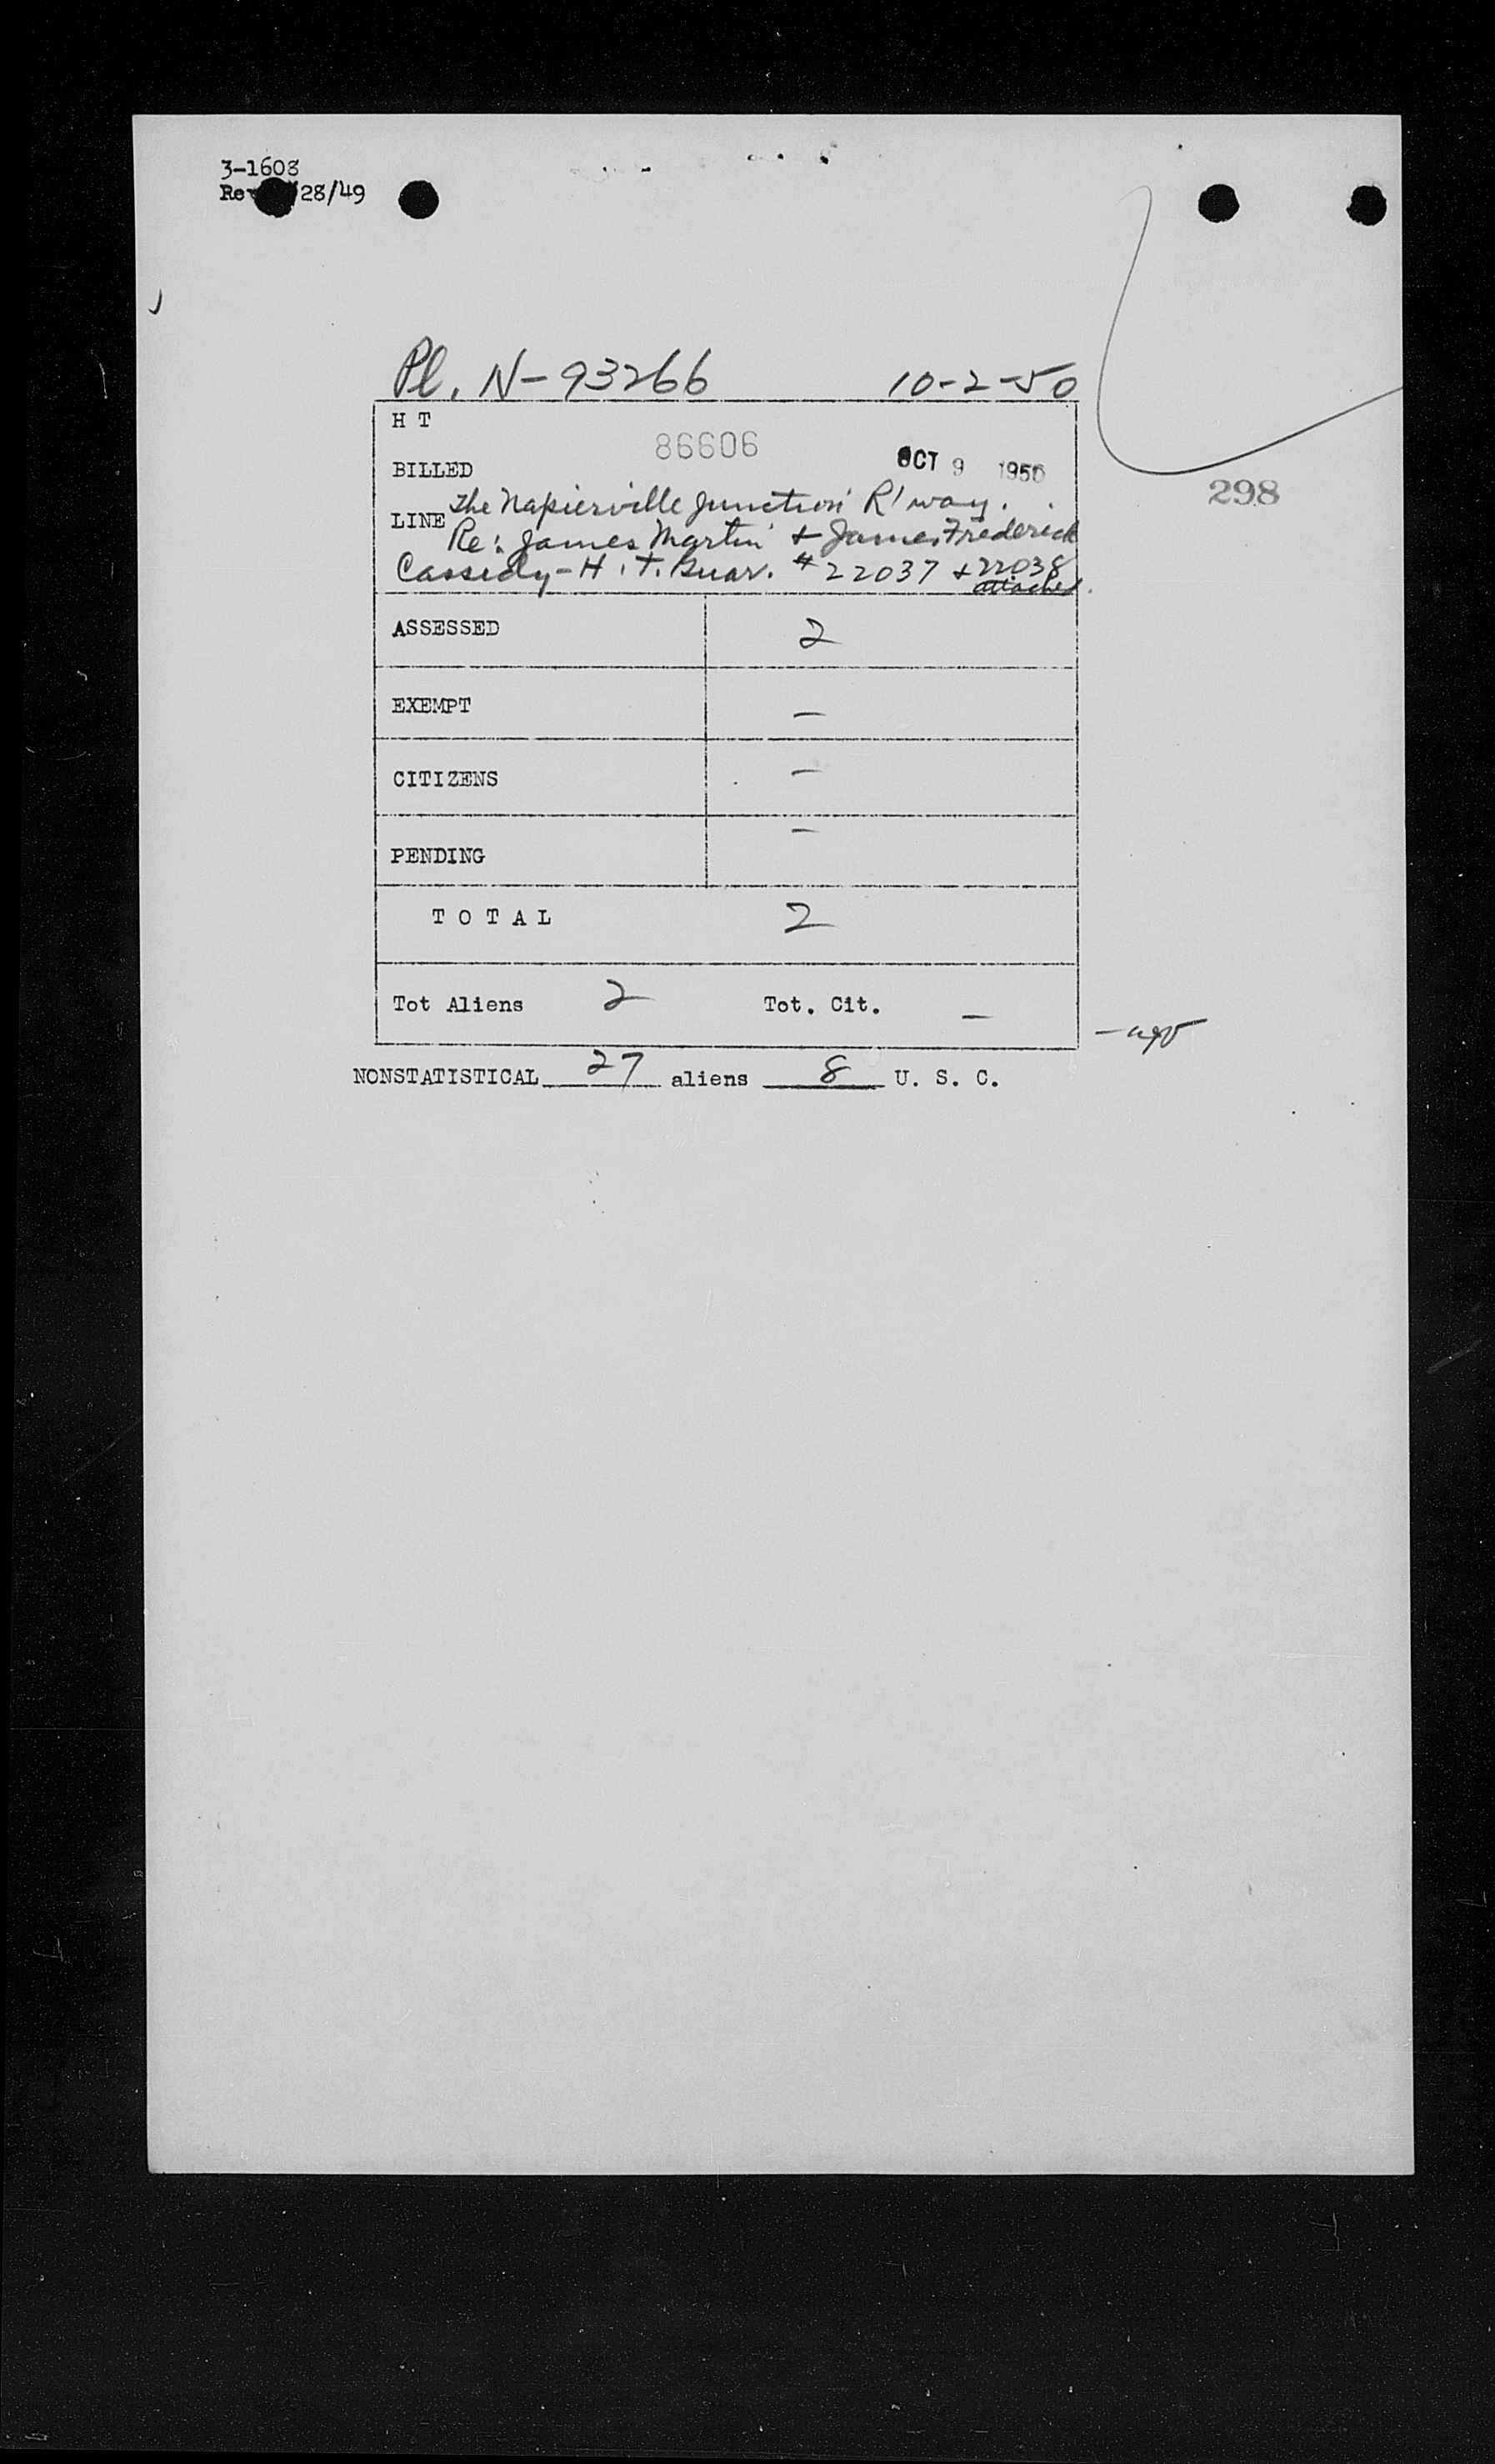 3-1608
Rev 28/49
Pl. N-93266 10-2-50
H T
86606
BILLED OCT 9 1950
LINE The Napierville Junction R'way.
Re: James Martin + James Frederick
Cassidy - H. T. Guar. # 22037 + 22038
attached
298
ASSESSED 2
EXEMPT –
CITIZENS –
PENDING –
T O T A L 2
Tot Aliens 2 Tot. Cit. –
NONSTATISTICAL 27 aliens 8 U. S. C.